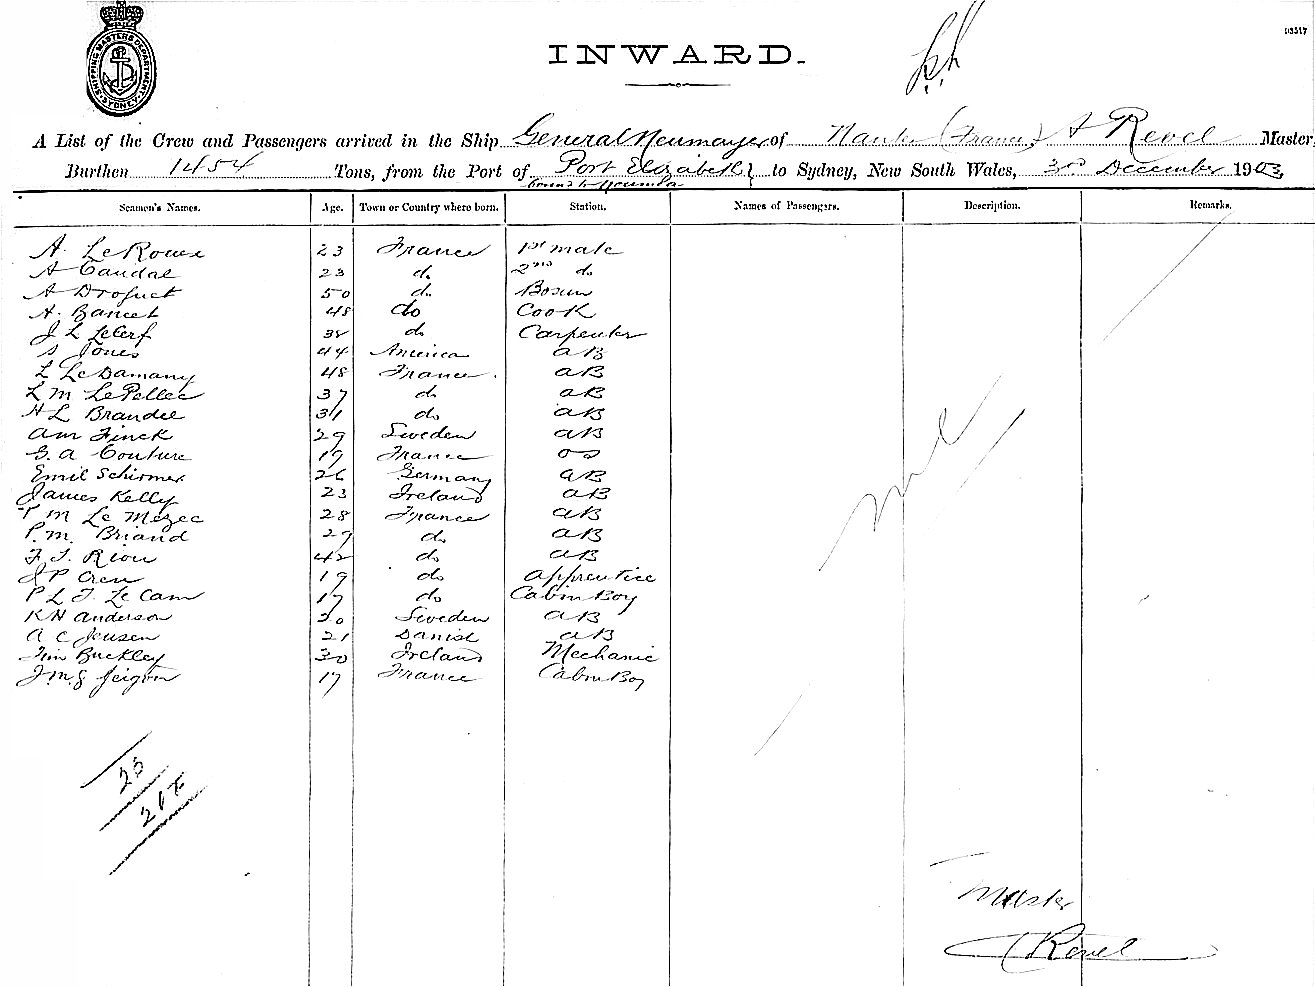 SHIPPING MASTERS DEPARTMENT SYDNEY
INWARD.
A List of the Crew and Passengers arrived in the Ship General Neumayer of Nantes (France) A Revel Master,
Burthen 1454 Tons, from the Port of Port Elizabeth to Sydney, New South Wales, 3rd December 1903
bound to Noumea
Seamen's Names. Age. Town or Country where born. Station. Names of Passengers. Description. Remarks.
A. LeRoux 23 France 1st mate
A Caudal 23 do 2nd do
A Droguet 50 do Bosun
A. Bancet 48 do Cook
J L LeCerf 38 do Carpenter
S Jones 44 America AB
L LeDamany 48 France. AB
L M LePellec 37 do AB
H L Brandee 31 do AB
AM Finck 29 Sweden AB
G. A Couture 19 France OS
Emil Schirmer 26 Germany AB
James Kelly 23 Ireland AB
T M Le Mezec 28 France AB
P. M. Briand 27 do AB
F. T. Riou 42 do AB
J P Cren 19 do Apprentice
P L T. Le Cam 17 do Cabin Boy
K H Anderson 20 Sweden AB
A C Jensen 21 Danish AB
Tim Buckley 30 Ireland Mechanic
J. M. G 17 France Cabin Boy
nil
23
Master
Revel